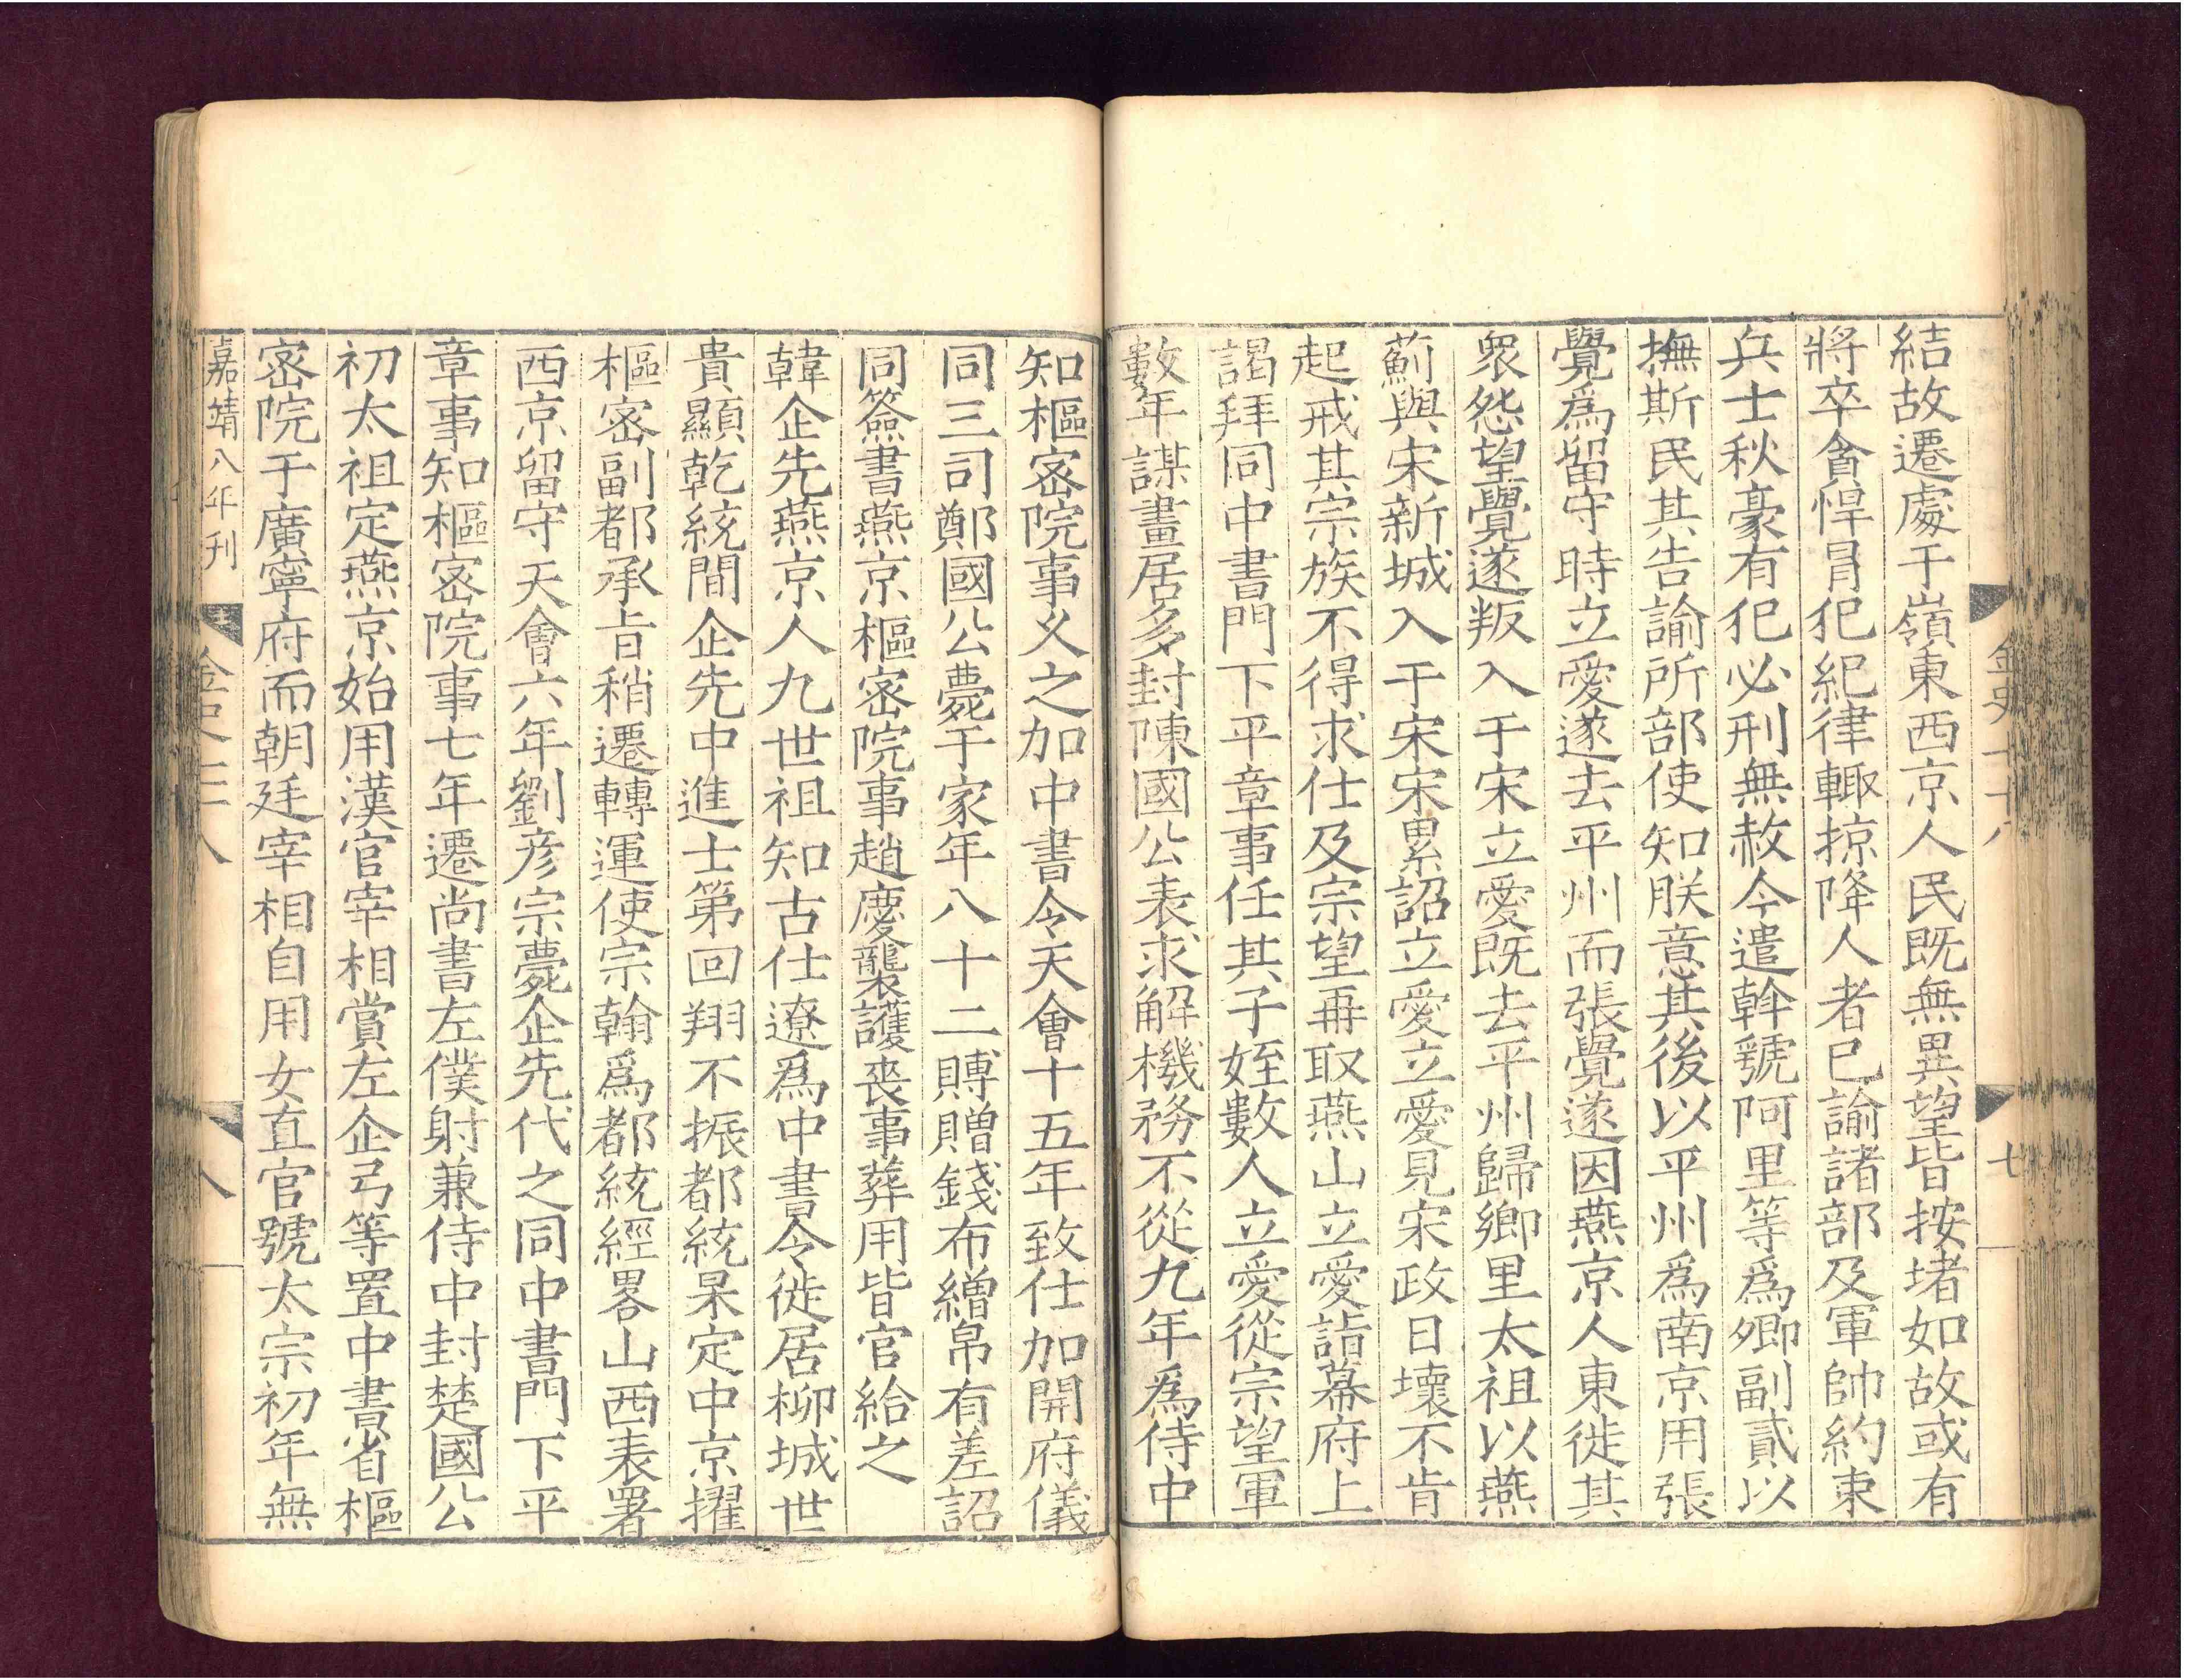 結故遷處于嶺東西京人民既無異望皆按堵如故或有
將卒貪悍冐犯紀律輙掠降人者已諭諸部及軍帥約束
兵士秋豪有犯必刑無赦今遣斡虢阿里等爲卿副貳以
撫斯民其告諭所部使知朕意其後以平州爲南京用張
覺爲留守時立愛遂去平州而張覺遂因燕京人東徙其
衆怨望覺遂叛入于宋立愛既去平州歸鄉里太祖以燕
薊與宋新城入于宋宋累詔立愛立愛見宋政日壞不肯
起戒其宗族不得求仕及宗望再取燕山立愛詣幕府上
謁拜同中書門下平章事任其子姪數人立愛從宗望軍
數年謀畫居多封陳國公表求解機務不從九年爲侍中
金史七十八
七
知樞宻院事义之加中書令天會十五年致仕加開府儀
同三司鄭國公薨于家年八十二賻贈錢布繒帛有差詔
同簽書燕京樞宻院事趙慶襲護喪事葬用皆官給之
韓企先燕京人九世祖知古仕遼爲中書令徙居柳城世
貴顯乾統間企先中進士第回翔不振都統杲定中京擢
樞宻副都承㫖稍遷轉運使宗翰爲都統經畧山西表署
西京留守天會六年劉彥宗薨企先代之同中書門下平
章事知樞宻院事七年遷尚書左僕射兼侍中封楚國公
初太祖定燕京始用漢官宰相賞左企弓等置中書省樞
宻院于廣寧府而朝廷宰相自用女直官號太宗初年無
嘉靖八年刊
八